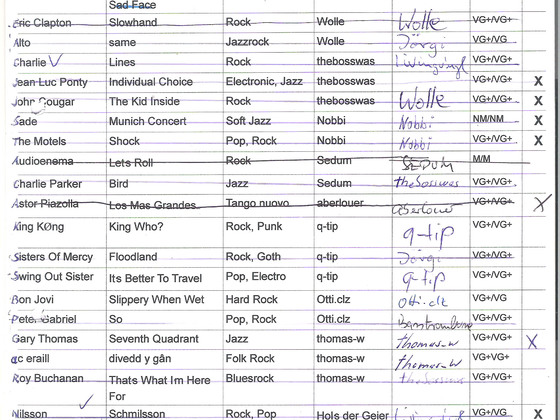 Sed Face
Eric Clapton Slowhand Rock Wolle Wolle VG+/VG+
Alto same Jazzrock Wolle Jörgi VG+/VG
Charlie Lines Rock thebosswas VG+/VG+
Jean Luc Ponty Individual Choice Electronic, Jazz thebosswas VG+/VG+ X
John Cougar The Kid Inside Rock thebosswas Wolle VG+/VG+ X
Sade Munich Concert Soft Jazz Nobbi Nobbi NM/NM X
The Motels Shock Pop, Rock Nobbi Nobbi VG+/VG+ X
Audioenema Lets Roll Rock Sedum SEDUM M/M
Charlie Parker Bird Jazz Sedum thebosswas VG+/VG+
Astor Piazolla Los Mas Grandes Tango nuovo aberlouer aberlouer VG+/VG+ X
King KØng King Who? Rock, Punk q-tip q-tip VG+/VG+
Sisters Of Mercy Floodland Rock, Goth q-tip Jörgi VG+/VG
Swing Out Sister Its Better To Travel Pop, Electro q-tip q-tip VG+/VG+
Bon Jovi Slippery When Wet Hard Rock Otti.clz Otti.clz VG+/VG
Peter Gabriel So Pop, Rock Otti.clz VG+/VG+
Gary Thomas Seventh Quadrant Jazz thomas-w thomas-w VG+/VG+ X
ac eraill divedd y gân Folk Rock thomas-w thomas-w VG+VG+
Roy Buchanan Thats What Im Here Bluesrock thomas-w VG+/VG+
For
Nilsson Schmilsson Rock, Pop Hols der Geier VG+/VG+ X